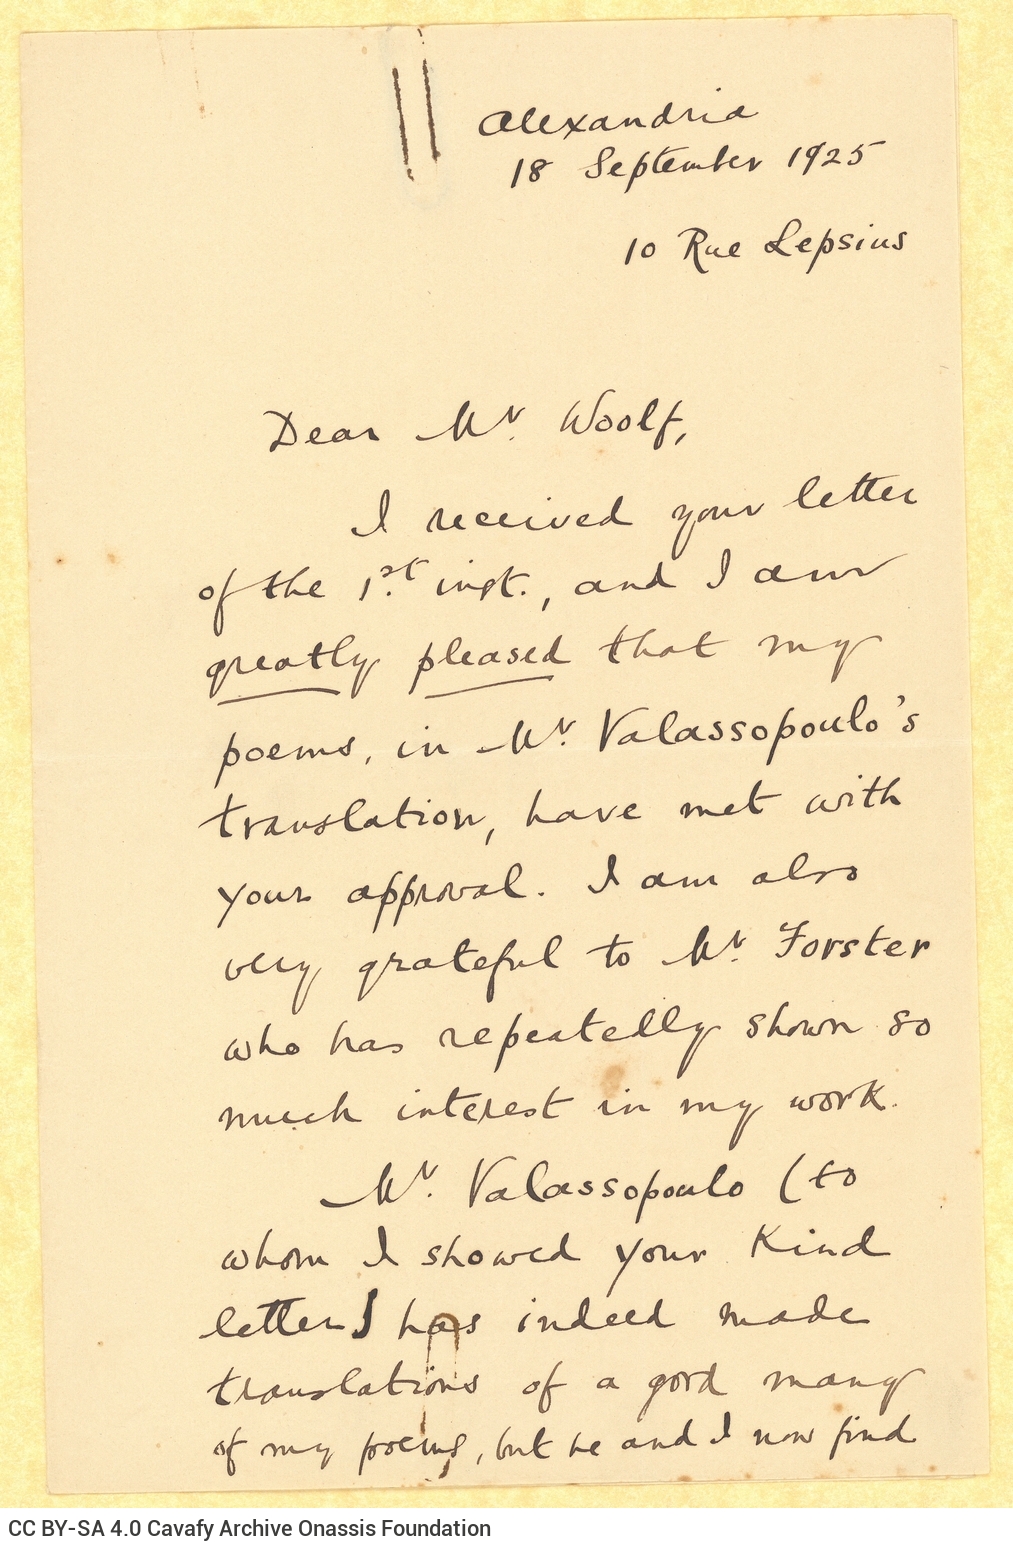 Alexandria
18 September 1925
10 Rue Lepsius
Dear Mr. Woolf,
I received your letter
of the 1st. inst., and I am
greatly pleased that my
poems, in Mr. Valassopoulo's
translation, have met with
your approval. I am also
very grateful to Mr. Forster
who has repeatedly shown so
much interest in my work.
Mr. Valassopoulo (to
whom I showed your kind
letter) has indeed made
translations of a good many
of my poems, but he and I now find
CC BY-SA 4.0 Cavafy Archive Onassis Foundation